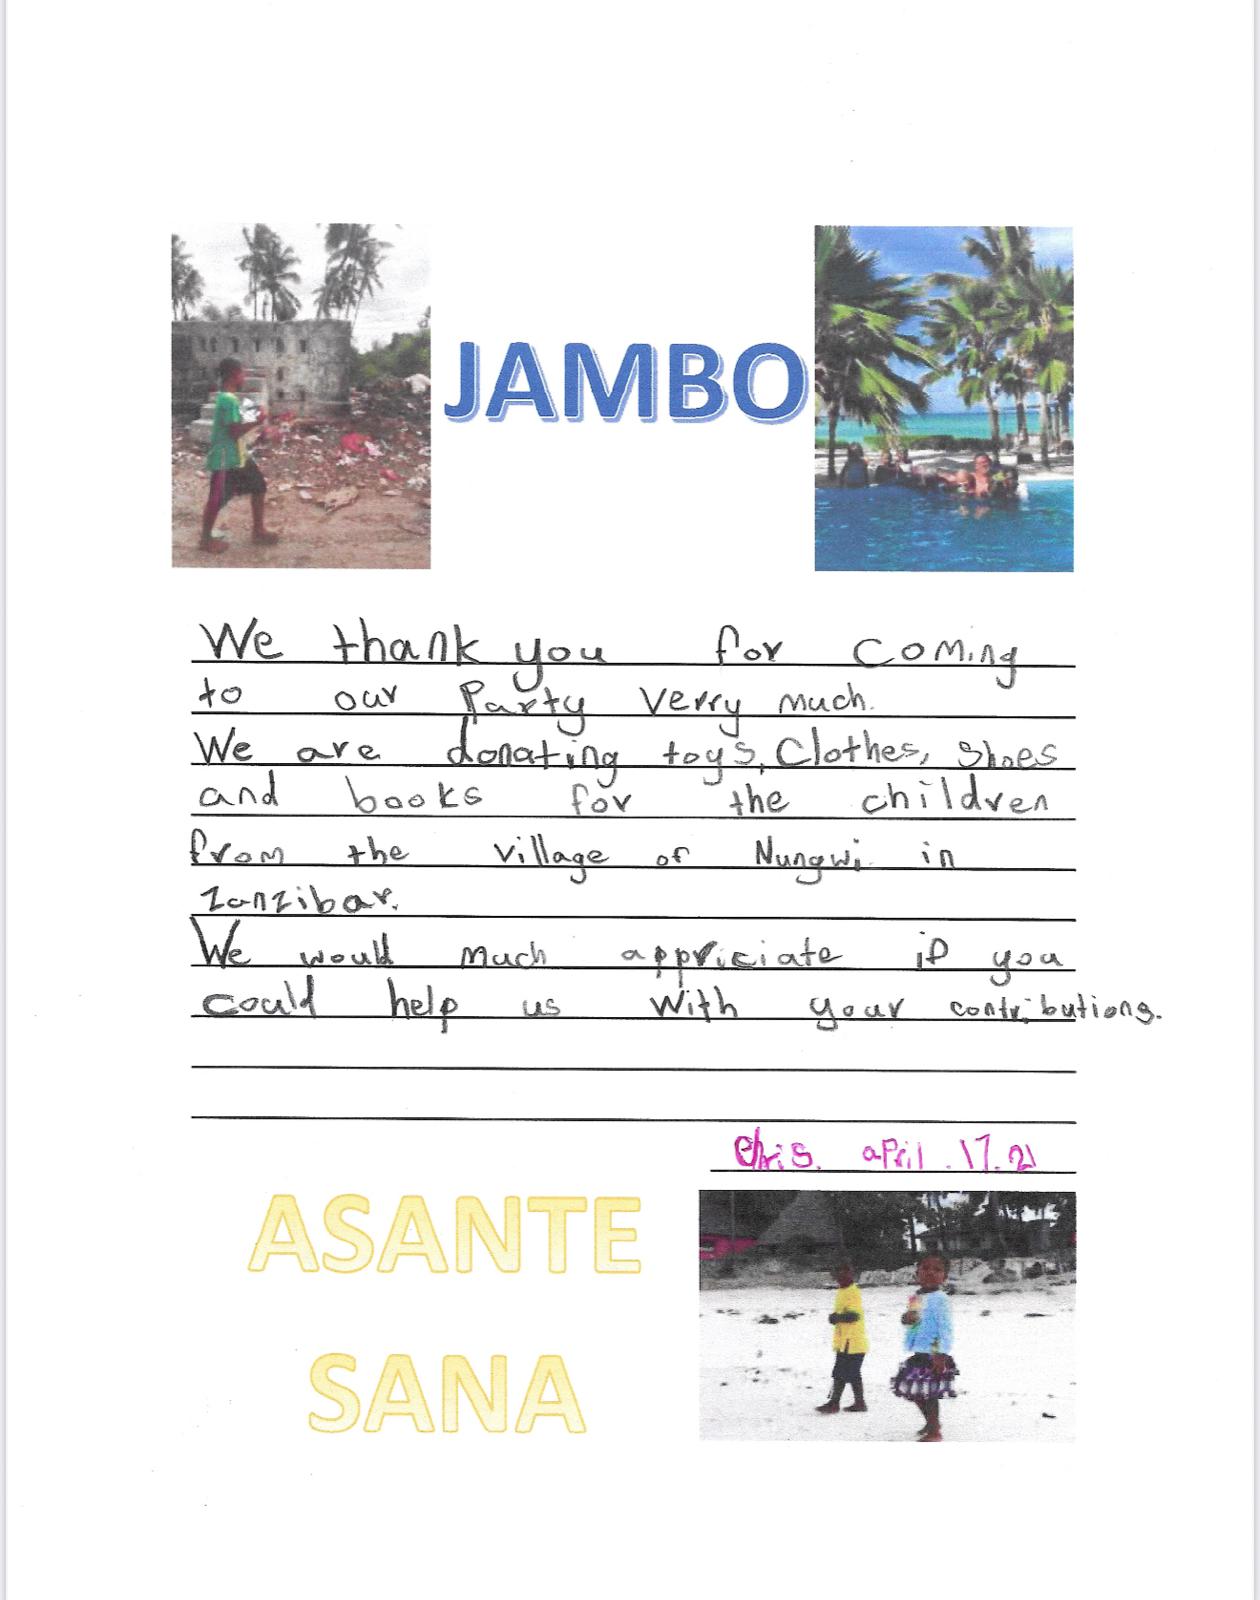 JAMBO
We thank you for coming
to our Party verry much.
We are donating toys, Clothes, Shoes
and books for the children
from the village of Nungwi in
Zanzibar.
We would much appriciate if you
could help us with your contributions.
Chris. april. 17. 21
ASANTE
SANA